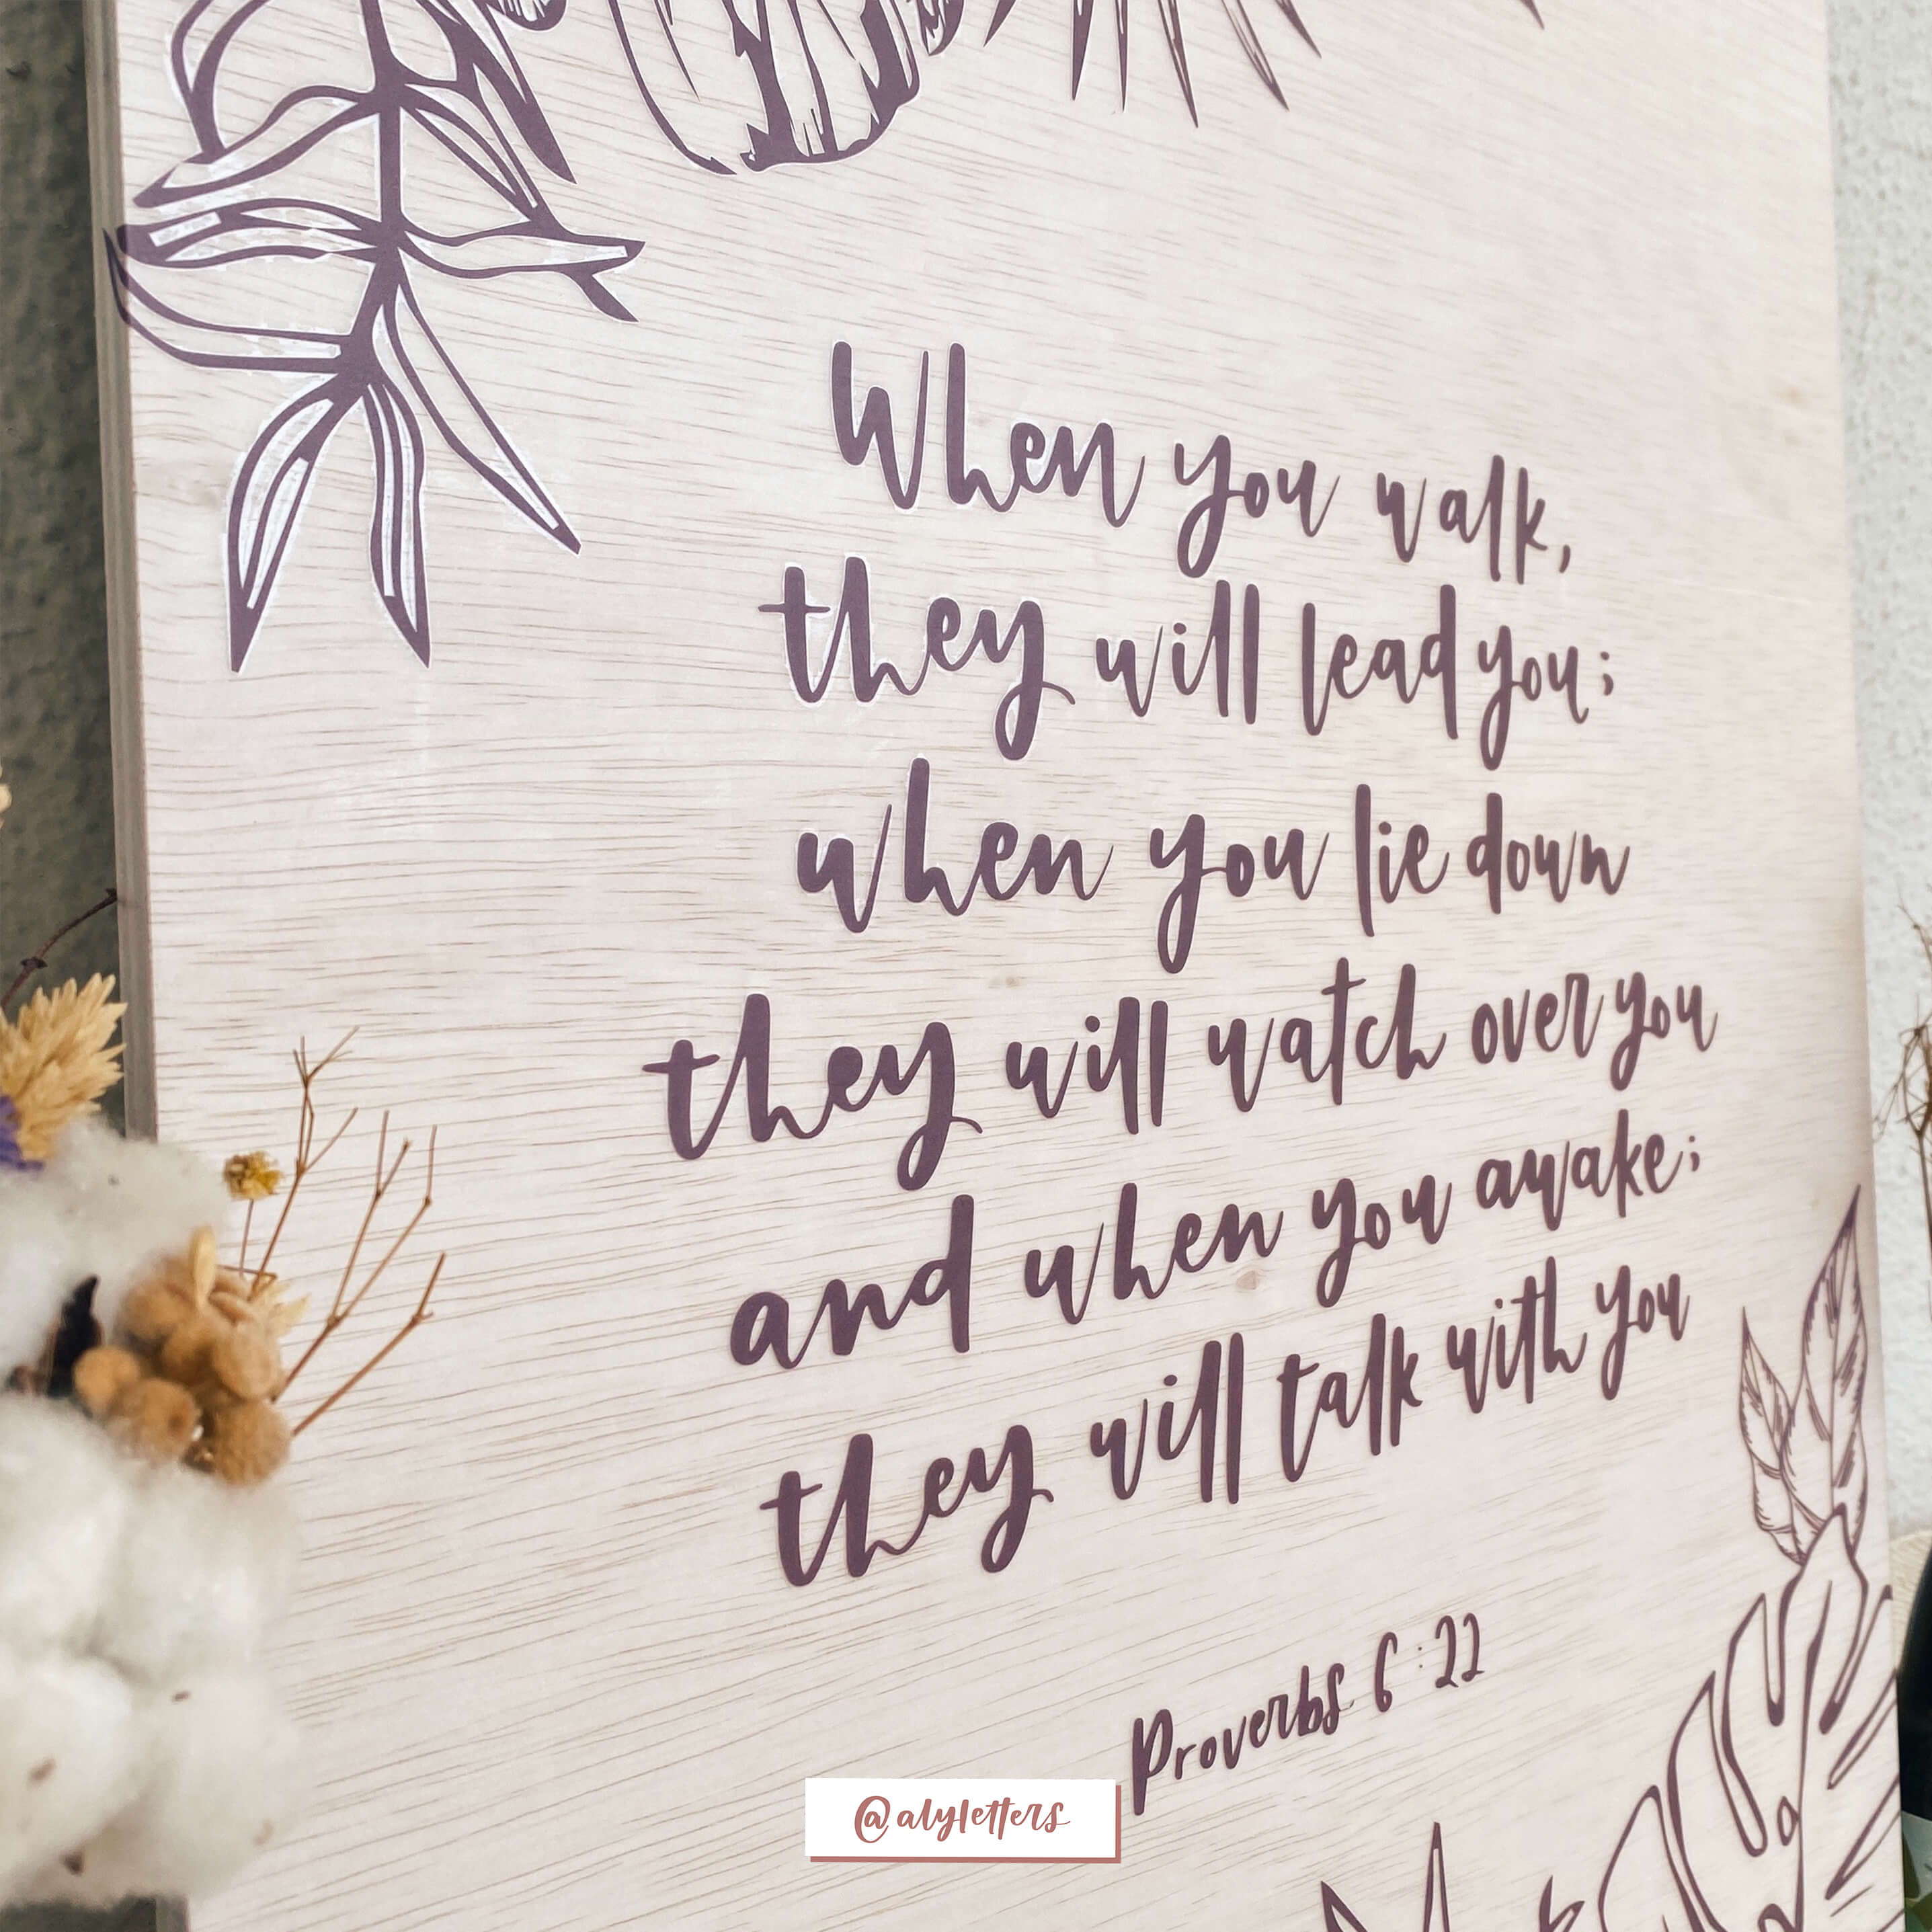 When you walk,
they will lead you;
when you lie down
they will watch over you
and when you awake;
they will talk with you
Proverbs 6:22
@alyletters